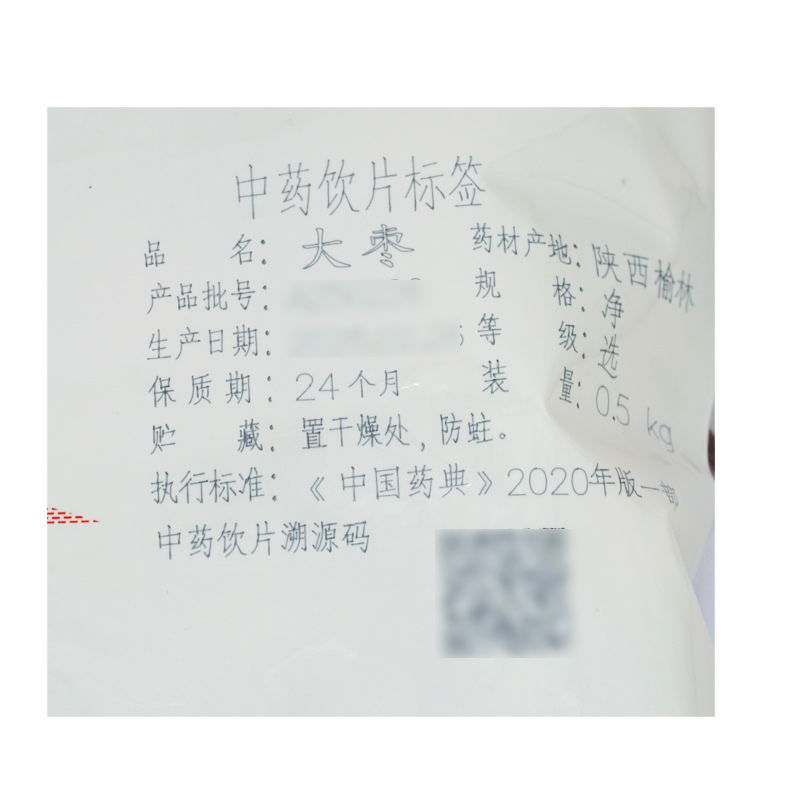 中药饮片标签
品 名：大枣 药材产地：陕西榆林
产品批号： 规 格：净
生产日期： 等 级：选
保质期：24个月 装 量：0.5 kg
贮 藏：置干燥处，防蛀。
执行标准：《中国药典》2020年版一部
中药饮片溯源码